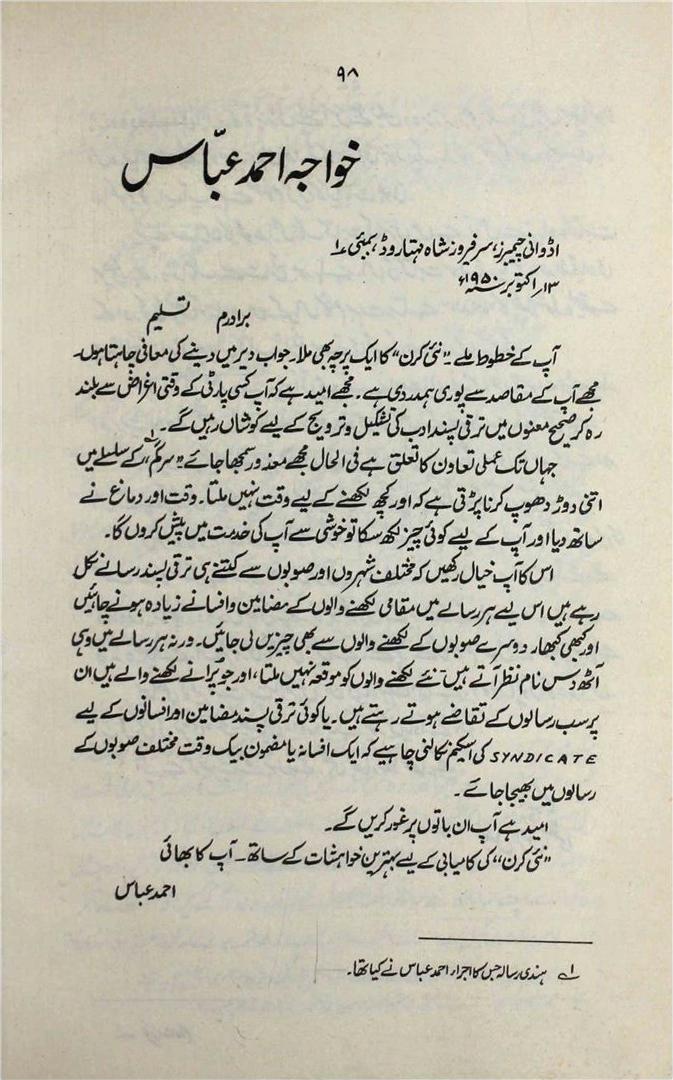 ۹۸
خواجہ احمد عبّاس
اڈوانی چیمبرز، سر فیروز شاہ مہتا روڈ، بمبئی ۱؎
۱۳؍ اکتوبر سنہ ۱۹۵۰ء
برادرم تسلیم
آپ کے خطوط ملے۔ ”نئی کرن“ کا ایک پرچہ بھی ملا۔ جواب دیر میں دینے کی معافی چاہتا ہوں۔
مجھے آپ کے مقاصد سے پوری ہمدردی ہے۔ مجھے امید ہے کہ آپ کسی پارٹی کے وقتی اغراض سے بلند
رہ کر صحیح معنوں میں ترقی پسند ادب کی تشکیل و ترویج کے لیے کوشاں رہیں گے۔
جہاں تک عملی تعاون کا تعلق ہے فی الحال مجھے معذور سمجھا جائے۔ ”سرگم“ ۱؎ کے سلسلے میں
اتنی دوڑ دھوپ کرنا پڑتی ہے کہ اور کچھ لکھنے کے لیے وقت نہیں ملتا۔ وقت اور دماغ نے
ساتھ دیا اور آپ کے لیے کوئی چیز لکھ سکا تو خوشی سے آپ کی خدمت میں پیش کروں گا۔
اس کا آپ خیال رکھیں کہ مختلف شہروں اور صوبوں سے کتنے ہی ترقی پسند رسالے نکل
رہے ہیں اس لیے ہر رسالے میں مقامی لکھنے والوں کے مضامین و افسانے زیادہ ہونے چاہئیں
اور کبھی کبھار دوسرے صوبوں کے لکھنے والوں سے بھی چیزیں لی جائیں۔ ورنہ ہر رسالے میں وہی
آٹھ دس نام نظر آتے ہیں۔ نئے لکھنے والوں کو موقعہ نہیں ملتا، اور جو پرانے لکھنے والے ہیں ان
پر سب رسالوں کے تقاضے ہوتے رہتے ہیں۔ یا کوئی ترقی پسند مضامین اور افسانوں کے لیے
SYNDICATE کی اسکیم نکالنی چاہیے کہ ایک افسانہ یا مضمون بیک وقت مختلف صوبوں کے
رسالوں میں بھیجا جائے۔
امید ہے آپ ان باتوں پر غور کریں گے۔
”نئی کرن“ کی کامیابی کے لیے بہترین خواہشات کے ساتھ۔ آپ کا بھائی
احمد عباس
۱؎ ہندی رسالہ جس کا اجرار احمد عباس نے کیا تھا۔